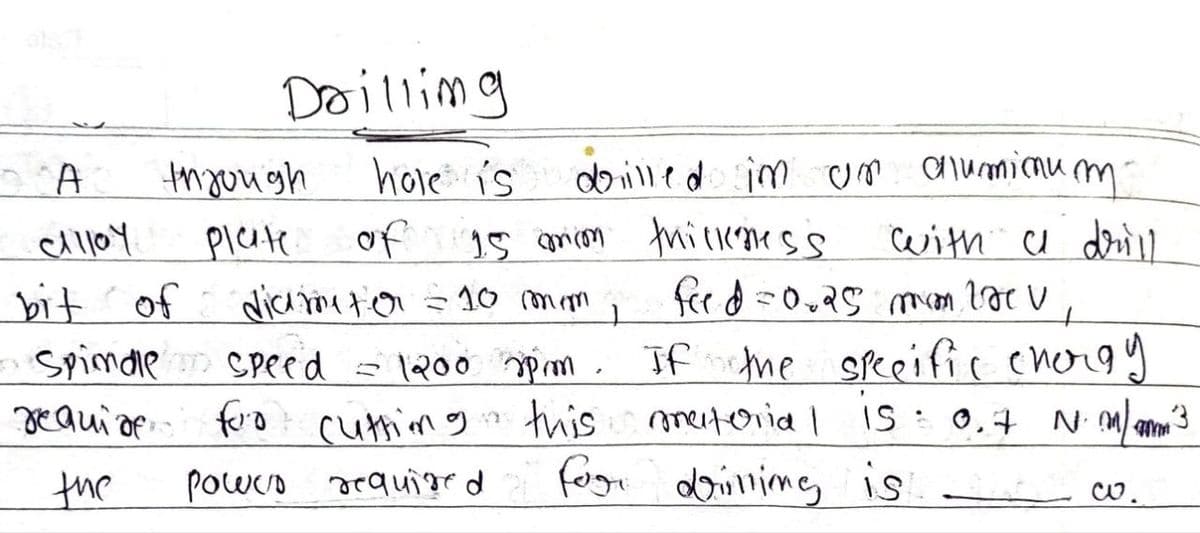 Drilling
A through hole is drilled in an aluminum
alloy plate of 15 mm thickness with a drill
bit of diameter = 10 mm, feed = 0.25 mm/rev,
spindle speed = 1200 rpm. If the specific energy
require for cutting this material is = 0.7 N.m/mm³
the power required for drilling is ____ w.